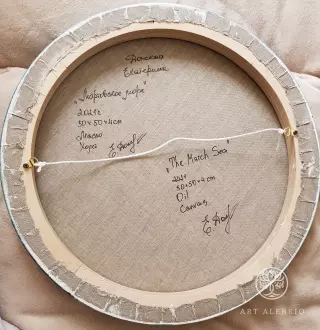 Екатерина
"Мартовское море"
2021г
50×50×4см
Масло
"The March Sea"
2021
50×50×4cm
Oil
Canvas
ART ALERRIO